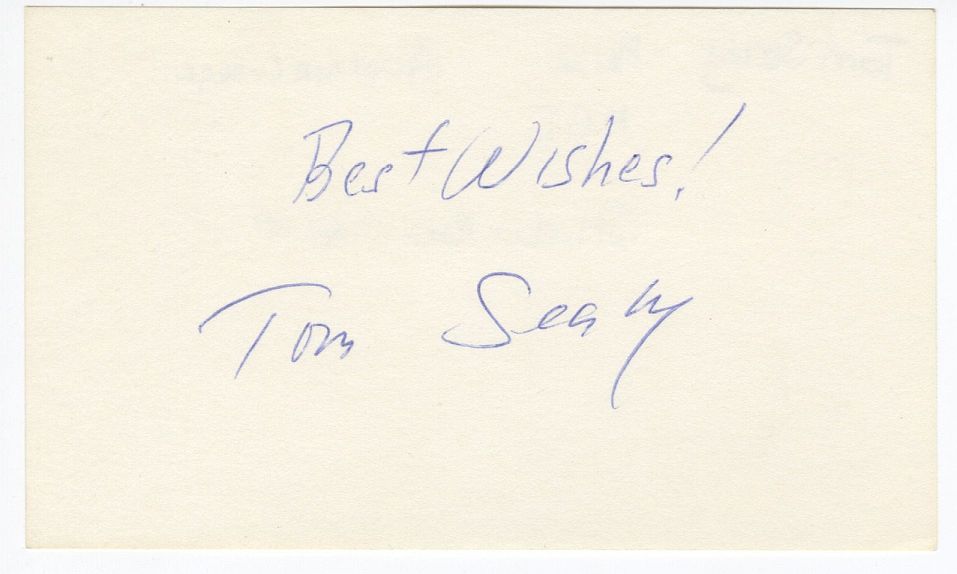 Best Wishes!
Tom Sealy